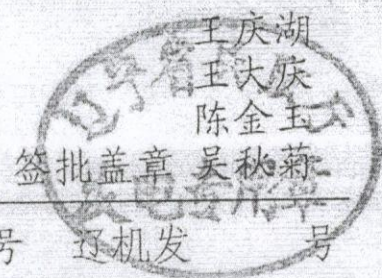 王庆湖
王大庆
陈金玉
签批盖章 吴秋菊
号 辽机发 号
辽宁省
发电专用章